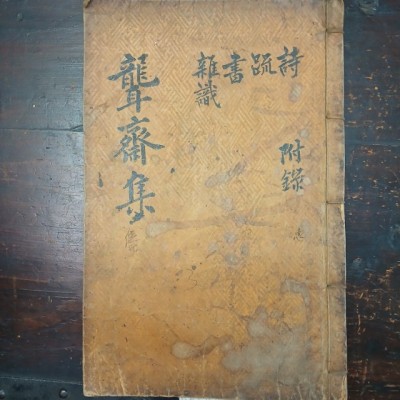 詩 附錄
疏
書
雜識
聾齋集